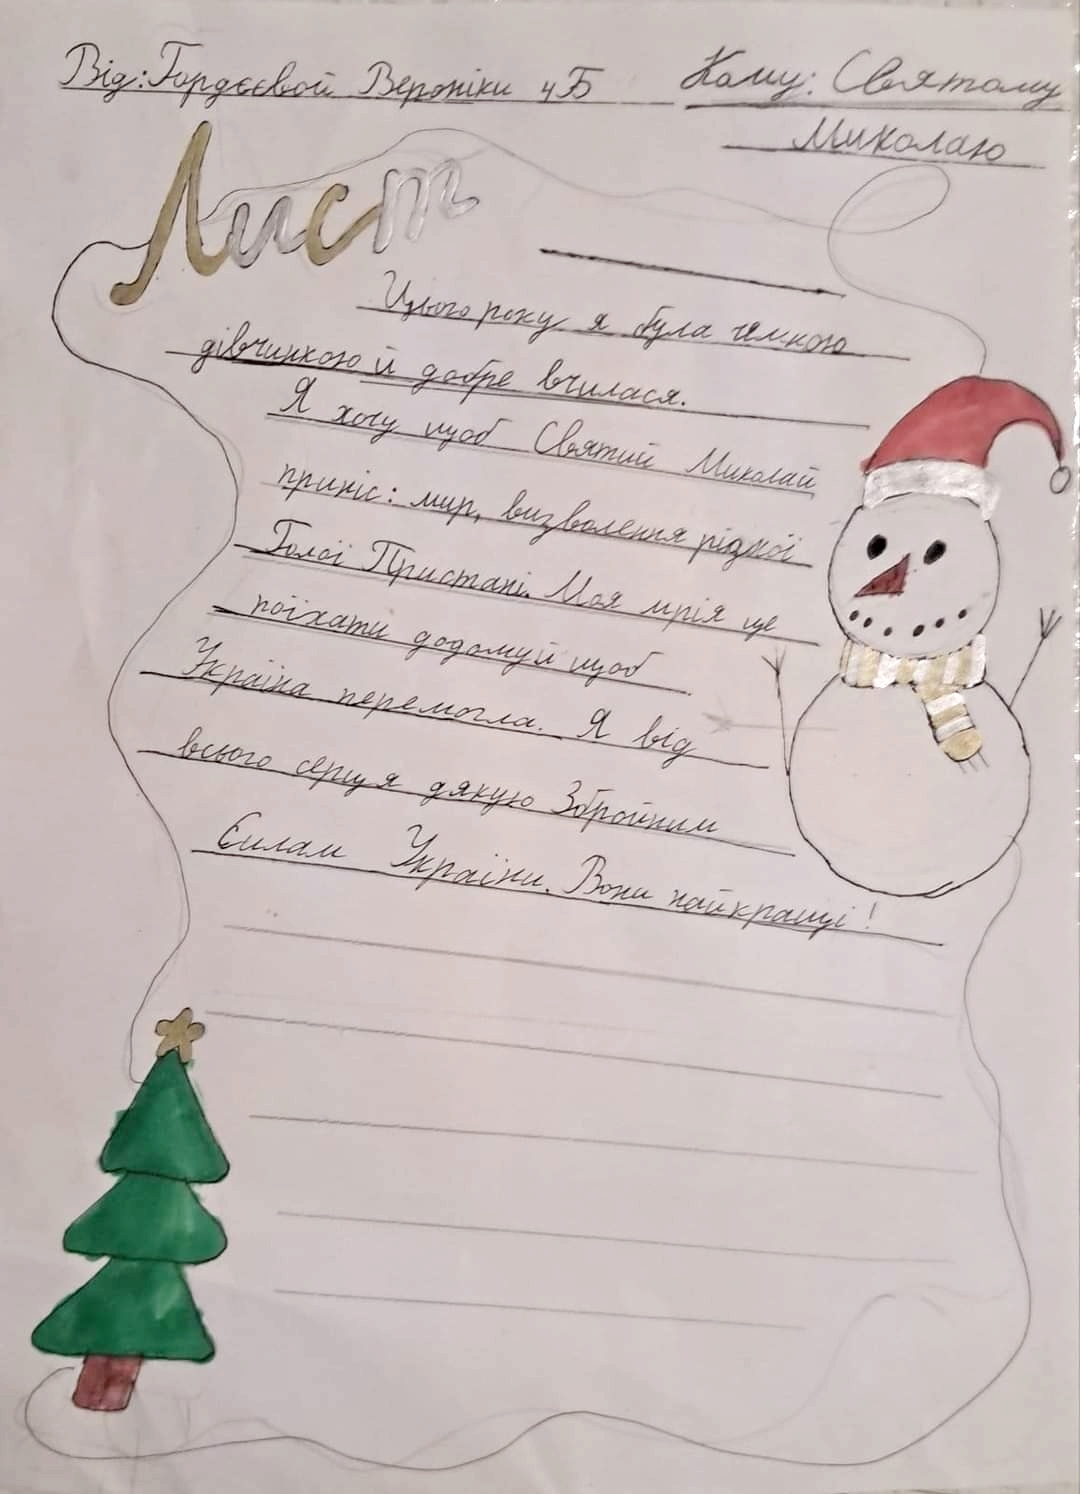 Від: Гордєєвой Вероніки 4Б
Кому: Святому
Миколаю
Лист
Цього року я була чемною
дівчинкою й добре вчилася.
Я хочу щоб Святий Миколай
приніс: мир, визволення рідної
Голої Пристані. Моя мрія ще
поїхати додому й щоб
Україна перемогла. Я від
всього серця дякую Збройним
Силам України. Вони найкращі!